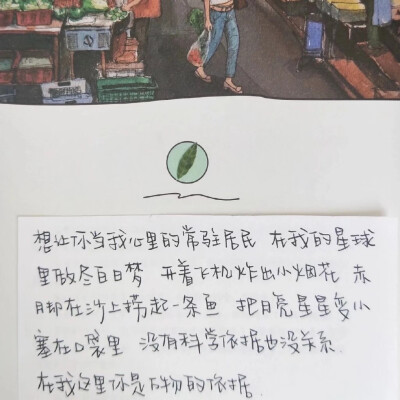 想让你当我心里的常驻居民 在我的星球
里做尽白日梦 开着飞机炸出小烟花 赤
脚在沙上捞起一条鱼 把月亮星星变小
塞在口袋里 没有科学依据也没关系
在我这里你是万物的依据